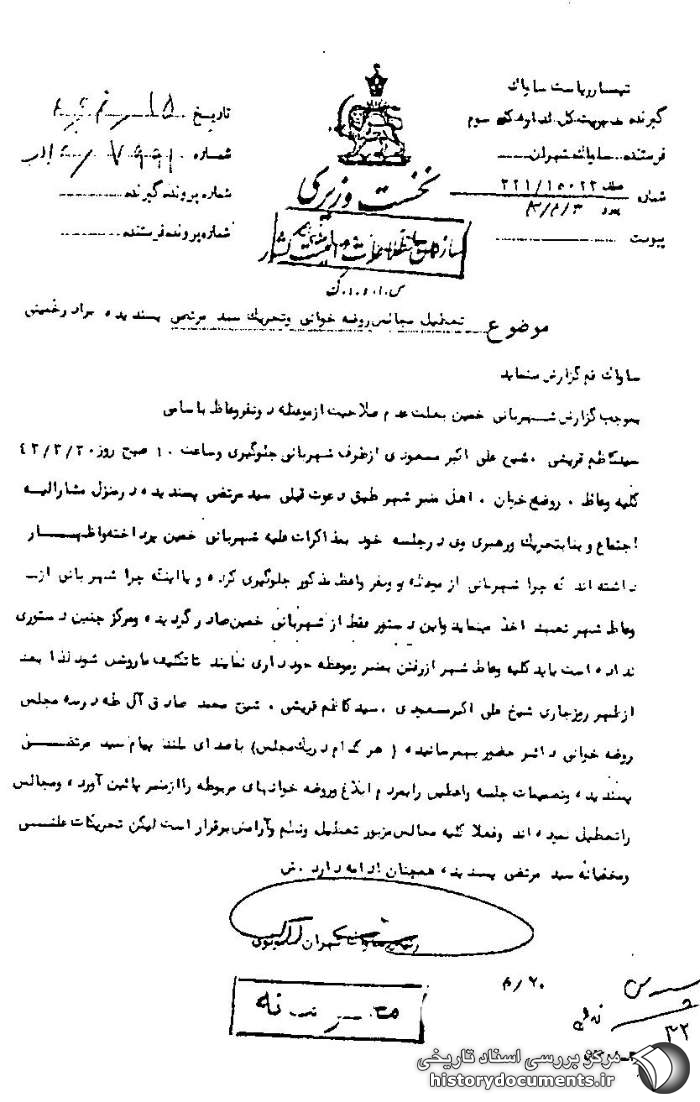 تیمسار ریاست ساواک
گیرنده مدیریت کل اداره کل سوم
فرستنده ساواک تهران
شماره ۲۲۱/۱۵۰۲۲
پیوست
تاریخ
شماره
شماره پرونده گیرنده
شماره پرونده فرستنده
نخست وزیری
سازمان اطلاعات و امنیت کشور
س.ا.و.ا.ک
موضوع تعطیل مجالس روضه خوانی و تحریک سید مرتضی پسندیده برادر خمینی
ساواک قم گزارش مینماید
بموجب گزارش شهربانی خمین بعلت عدم صلاحیت از موعظه دو نفر وعاظ باسامی
سیدکاظم قریشی ، شیخ علی اکبر مسعودی از طرف شهربانی جلوگیری و ساعت ۱۰ صبح روز ۴۲/۳/۲۰
کلیه وعاظ ، روضه خوان ، اهل منبر شهر طبق دعوت قبلی سید مرتضی پسندیده در منزل مشارالیه
اجتماع و بنا بتحریک و رهبری وی در جلسه خود بمذاکرات علیه شهربانی خمین پرداخته و اظهار
داشته اند که چرا شهربانی از موعظه دو نفر واعظ مذکور جلوگیری کرده و یا اینکه چرا شهربانی از
وعاظ شهر تعهد اخذ مینماید و این دستور فقط از شهربانی خمین صادر گردیده و مرکز چنین دستوری
نداده است باید کلیه وعاظ شهر از رفتن بمنبر و موعظه خودداری نمایند تا تکلیف ما روشن شود لذا بعد
از ظهر روز جاری شیخ علی اکبر مسعودی ، سید کاظم قریشی ، شیخ محمد صادق آل طه در سه مجلس
روضه خوانی دائر حضور بهمرسانیده ( هر کدام در یک مجلس) با صدای بلند پیام سید مرتضی
پسندیده و تصمیمات جلسه واعظین را بمردم ابلاغ و روضه خوانهای مربوطه را از منبر پائین آورده و مجالس
را تعطیل نموده اند و فعلا کلیه مجالس مزبور تعطیل و نظم و آرامش برقرار است لیکن تحریکات علنی
و مخفیانه سید مرتضی پسندیده همچنان ادامه دارد . ش
ساواک تهران
محرمانه
۳۲
مرکز بررسی اسناد تاریخی
historydocuments.ir